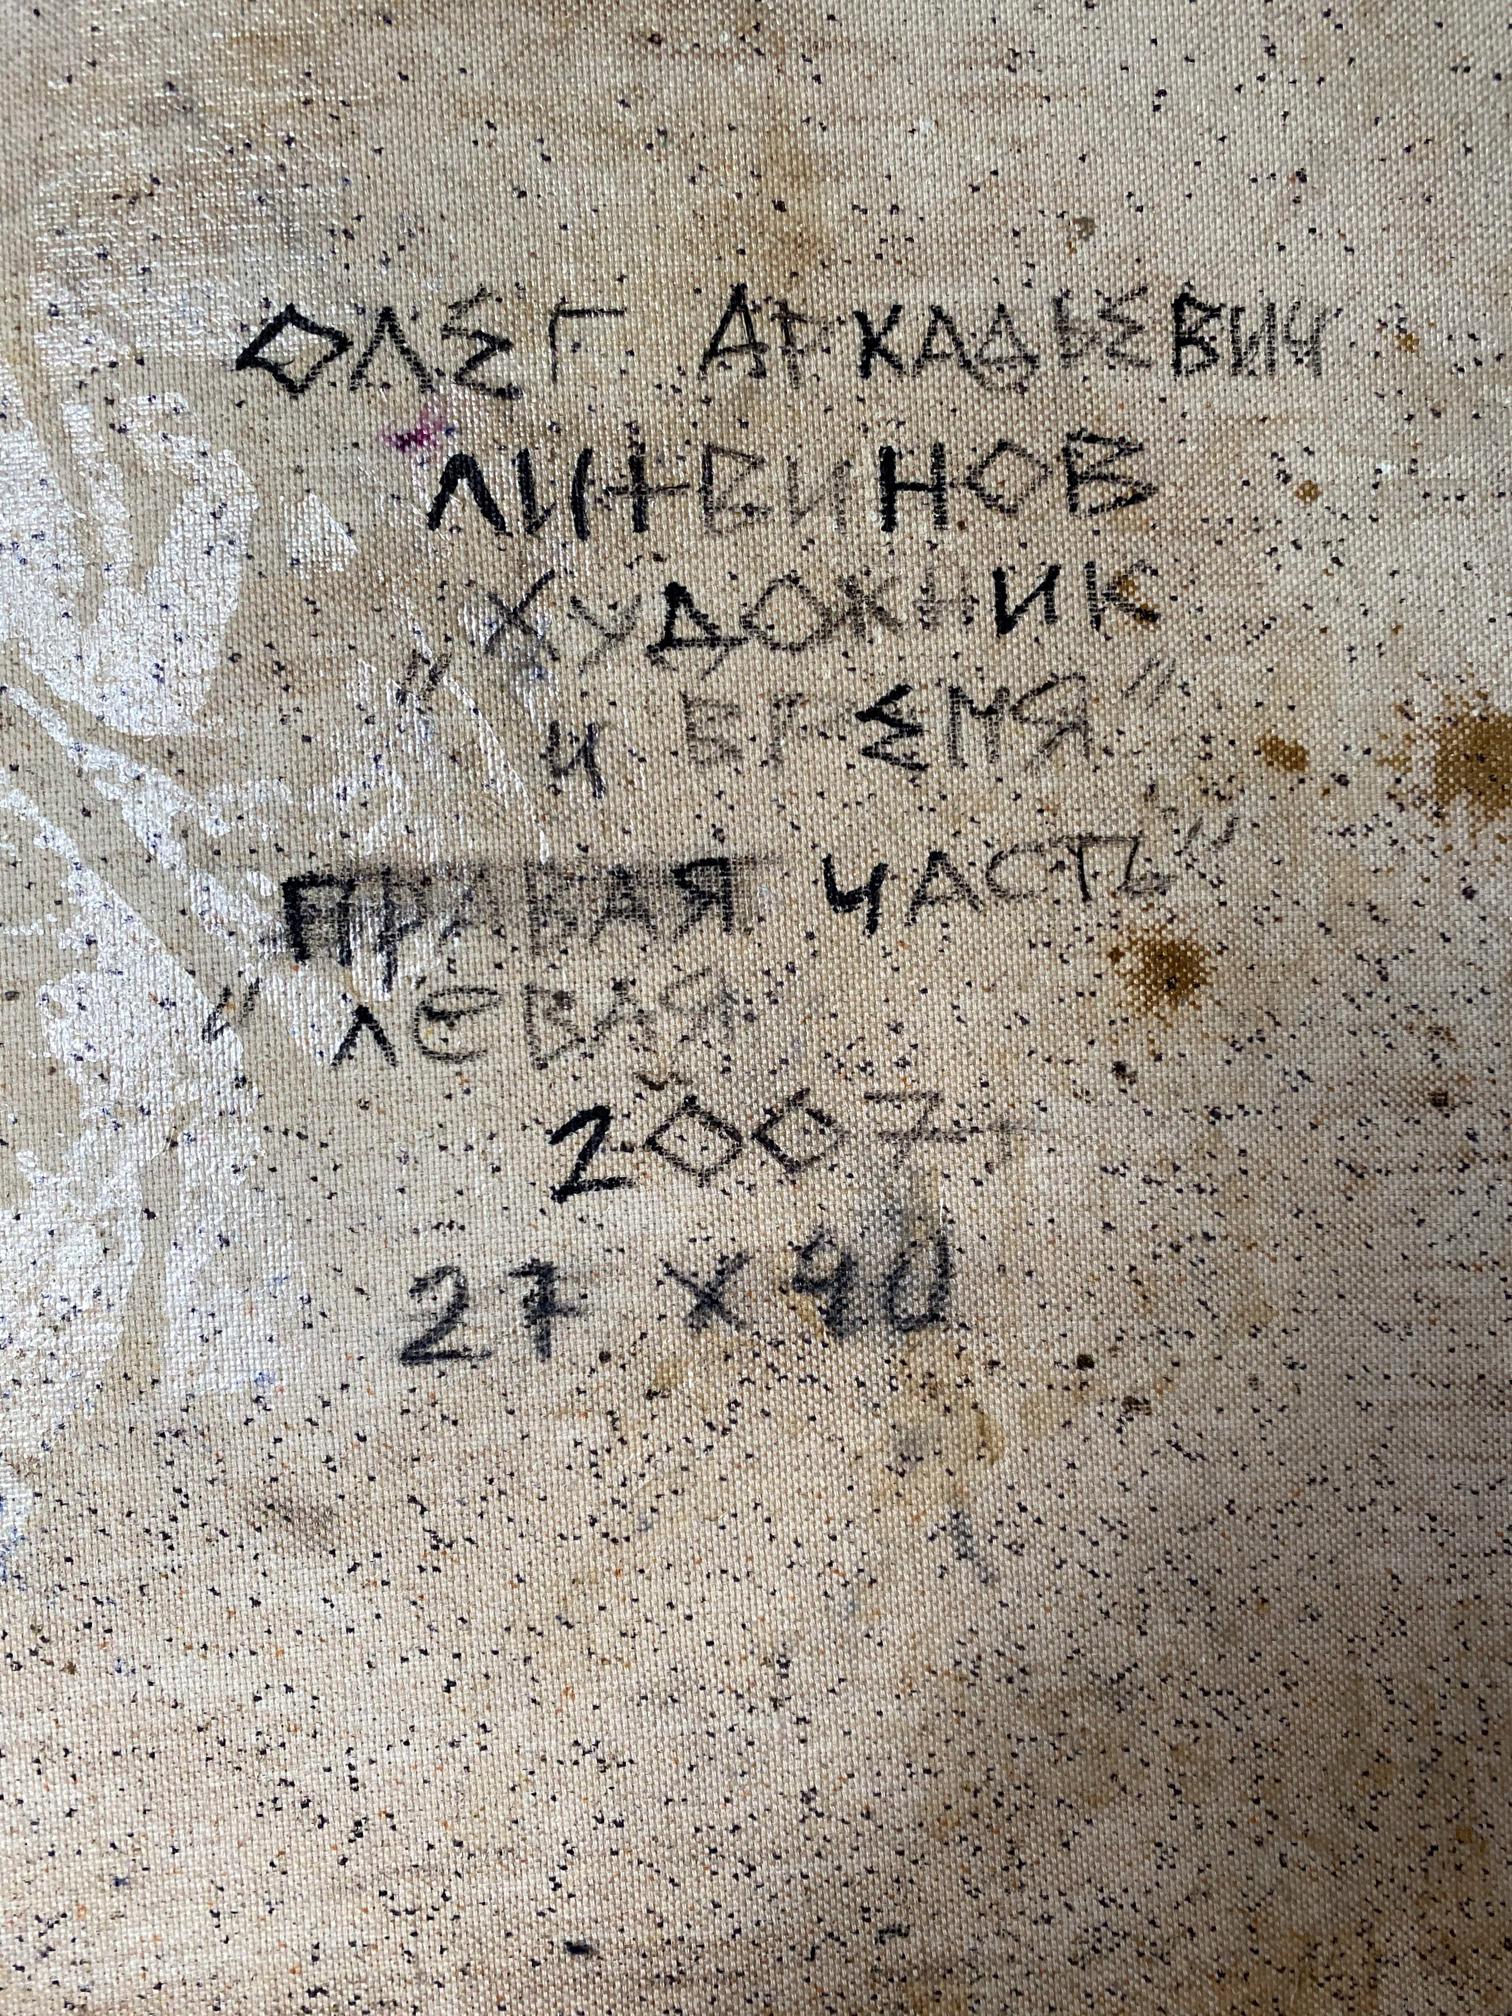 ОЛЕГ АРКАДЬЕВИЧ
ЛИТВИНОВ
"ХУДОЖНИК
И ВРЕМЯ"
ПРАВАЯ ЧАСТЬ"
"ЛЕВАЯ
2007
27 х 90